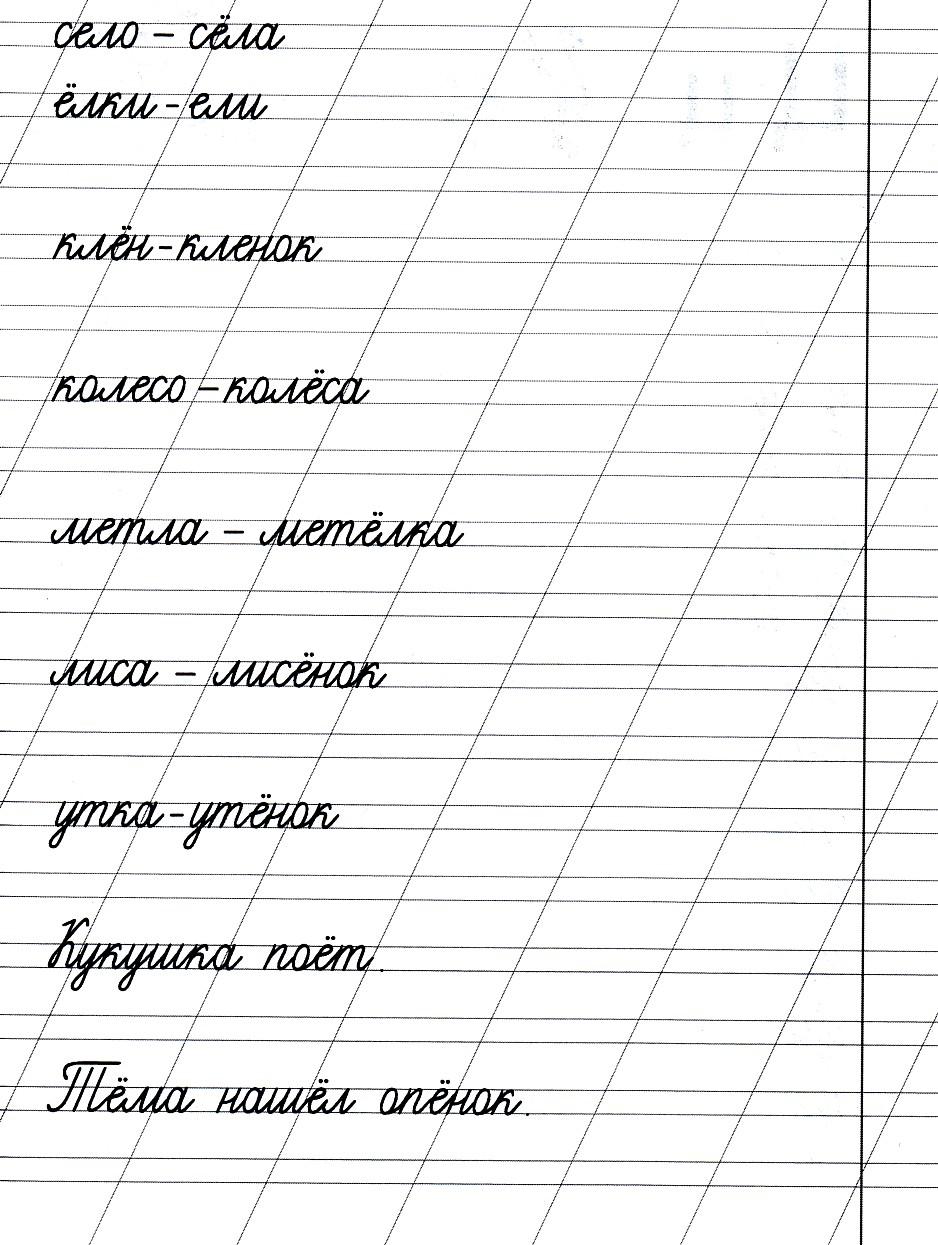 село – сёла
ёлки - ели
клён - кленок
колесо – колёса
метла – метёлка
лиса – лисёнок
утка - утёнок
Кукушка поёт.
Тёма нашёл опёнок.